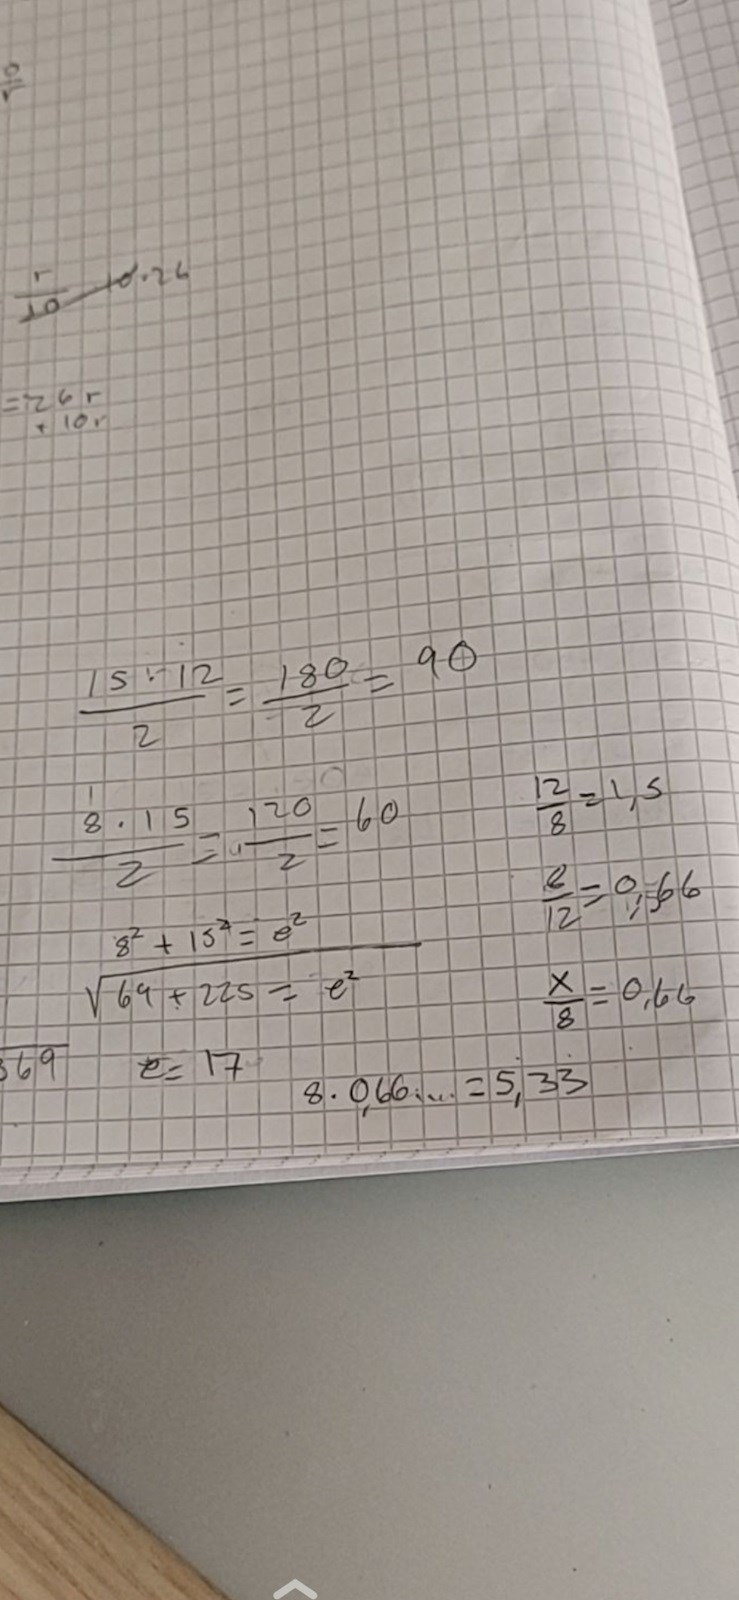 r/10 10.26
=26r
+10r
15·12/2 = 180/2 = 90
8·15/2 = 120/2 = 60
12/8 = 1,5
8/12 = 0,66
8² + 15² = e²
√64 + 225 = e²
x/8 = 0,66
369
e = 17
8·0,66... = 5,33